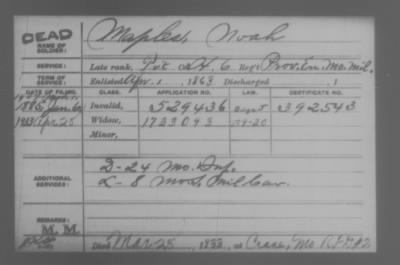 DEAD
NAME OF SOLDIER:
Maples, Noah
SERVICE: Late rank, Pvt Co. H, 6 Regt Prov. En. Mo. Mil.
TERM OF SERVICE: Enlisted Apr. 1, 1863 Discharged , 1
DATE OF FILING. CLASS. APPLICATION NO. LAW. CERTIFICATE NO.
1885 Jan. Invalid, 529436 392543
1933 Apr 25 Widow, 1733093
Minor,
ADDITIONAL SERVICES: D-24 Mo. Inf.
L-8 Mo. S. Mil Cav.
REMARKS:
M. M.
Died Mar 25, 1933, at Crane, Mo R.F.D. #2